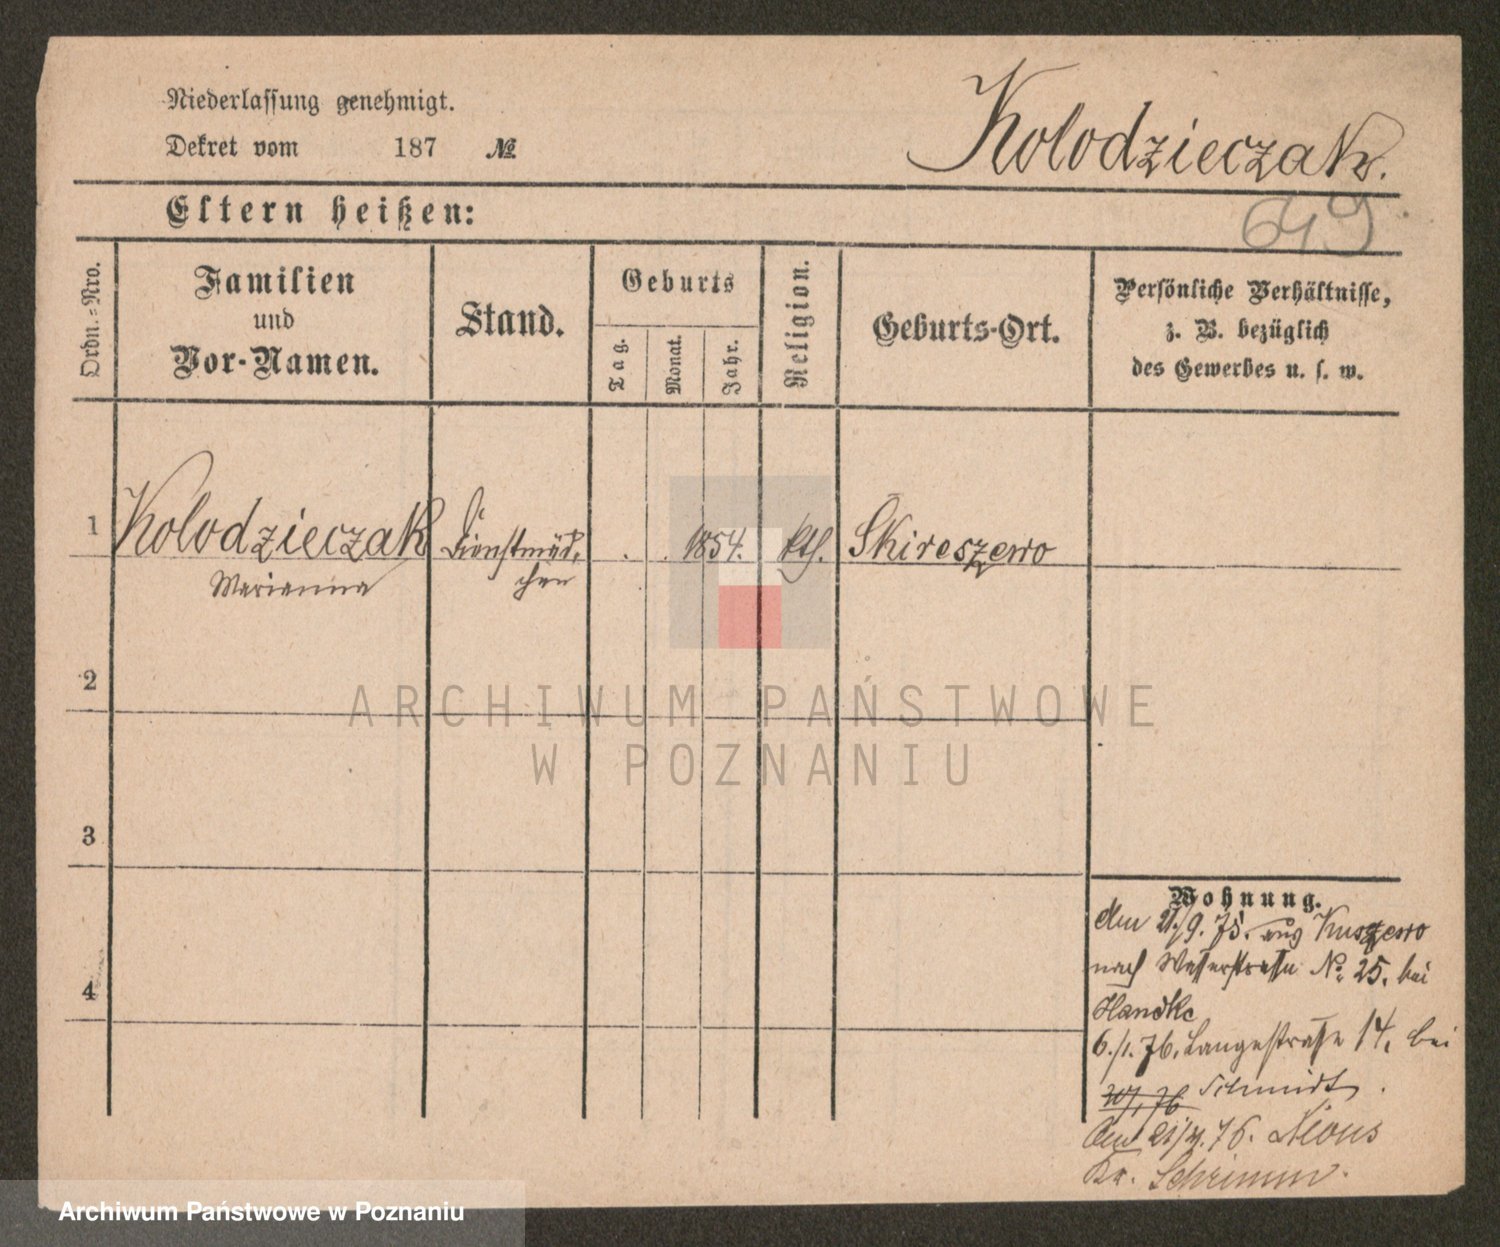 Niederlassung genehmigt.
Dekret vom 187 №
Kolodzieczak.
649
Eltern heißen:
Ordn.=Nro.
Familien
und
Vor-Namen.
Stand.
Geburts
Tag.
Monat.
Jahr.
Religion.
Geburts-Ort.
Persönliche Verhältnisse,
z. B. bezüglich
des Gewerbes u. s. w.
1 Kolodzieczak Dienstmäd- . . 1854. kth. Skireszewo
Marianna chen
2
3
4
Wohnung.
den 21./9. 75. aus Kuszewo
nach Wasserstrasse No 25. bei
Handke
6./1. 76. Langestraße 14. bei
Schmidt.
Den 21/4. 76.
Kr. Schrimm.
ARCHIWUM PAŃSTWOWE
W POZNANIU
Archiwum Państwowe w Poznaniu